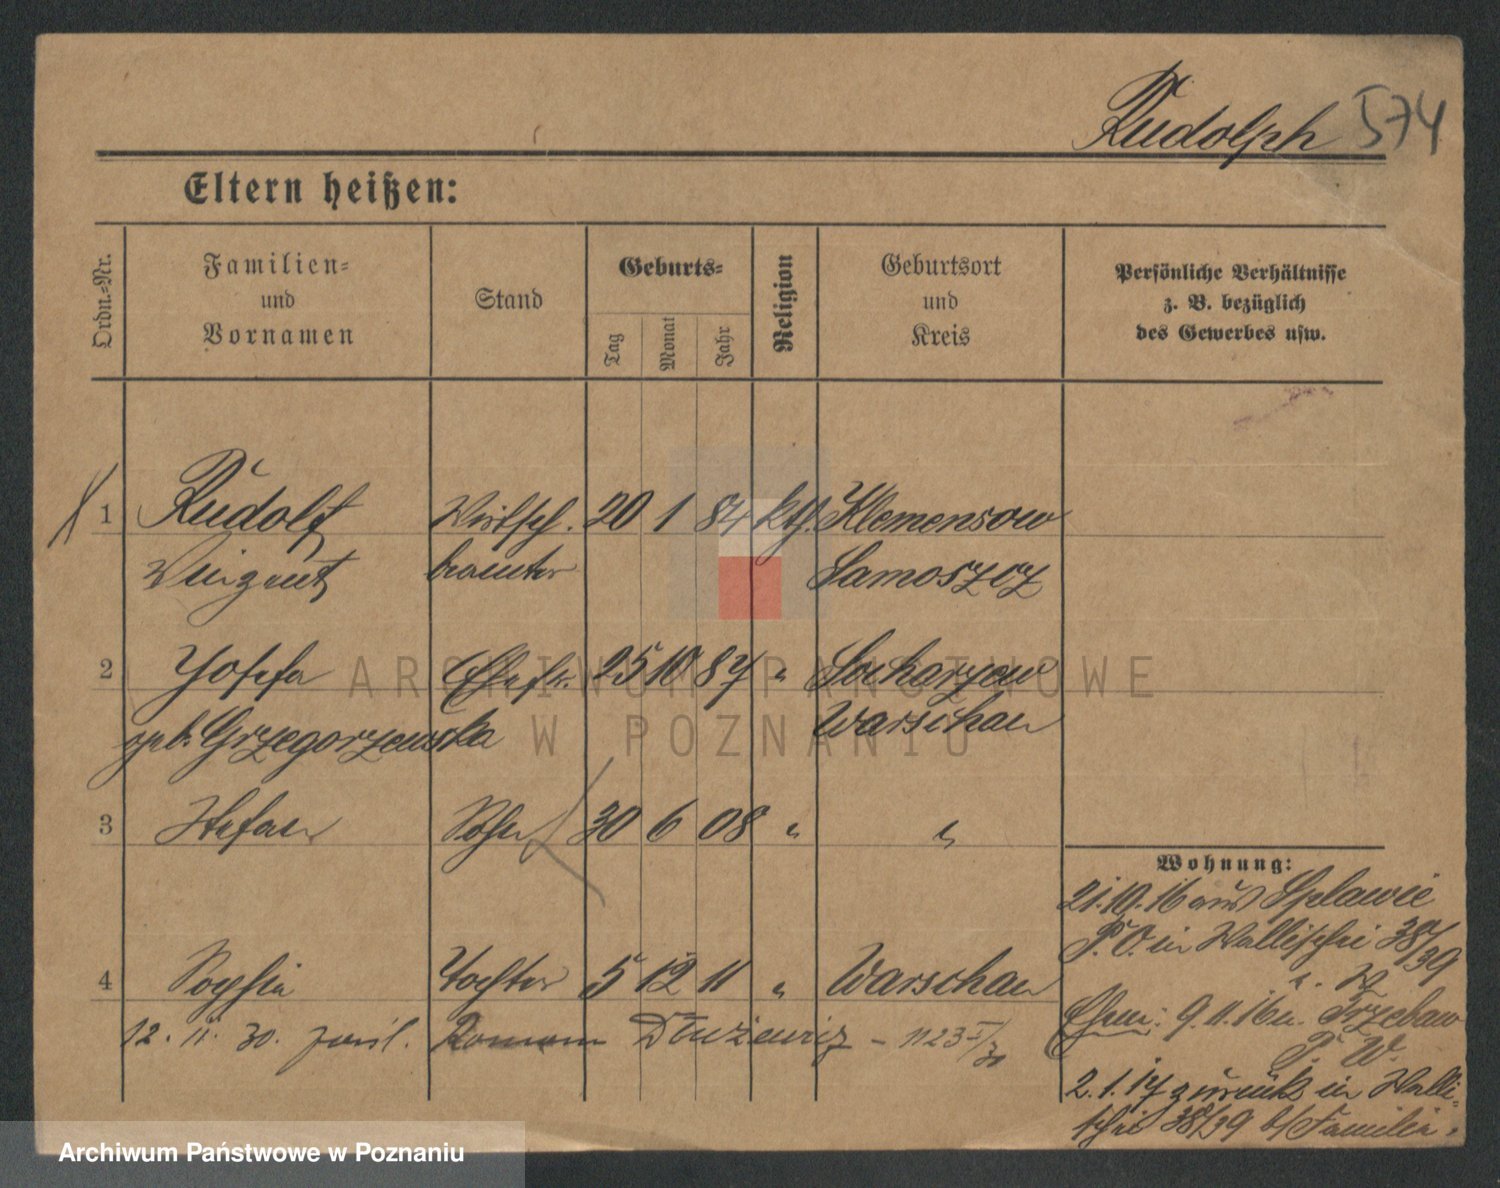 Rudolph 574
Eltern heißen:
Ordn.-Nr.
Familien-
und
Vornamen
Stand
Geburts-
Tag
Monat
Jahr
Religion
Geburtsort
und
Kreis
Persönliche Verhältnisse
z. B. bezüglich
des Gewerbes usw.
1 Rudolf Wirtsch. 20 1 84 kth. Klemensow
Vinzent beamter Samoszcz
2 Josefa Ehefr. 25 10 87 " Socharzew
geb. Grzegorzewska Warschau
3 Stefan Sohn 30 6 08 " "
Wohnung:
21.10.16 aus Splawie
P.O. in Wallischei 38/39
4 Sophia Tochter 5 12 11 " Warschau
Ehem: 9.11.16 n. Trzebaw
P. W.
12. 11. 30. Roman Dłużewicz - 1123
2.1.17 zurück in Walli-
schei 38/39 b/ Familie.
ARCHIWUM PAŃSTWOWE
W POZNANIU
Archiwum Państwowe w Poznaniu